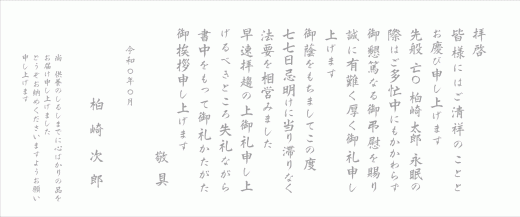 拝啓
皆様にはご清祥のことと
お慶び申し上げます
先般 亡〇 柏崎 太郎 永眠の
際はご多忙中にもかかわらず
御懇篤なる御弔慰を賜り
誠に有難く厚く御礼申し
上げます
御蔭をもちましてこの度
七七日忌明けに当り滞りなく
法要を相営みました
早速拝趨の上御礼申し上
げるべきところ失礼ながら
書中をもって御礼かたがた
御挨拶申し上げます
敬具
令和〇年〇月
柏崎 次郎
尚 供養のしるしまでに心ばかりの品を
お届け申し上げました
どうぞお納めくださいますようお願い
申し上げます